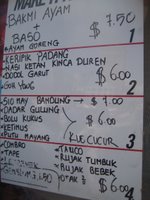 BAKMI AYAM $7.50
BASO
AYAM GORENG 1
KERIPIK PADANG
NASI KETAN KINCA DUREN
DODOL GARUT $6.00
2
SIOMAY BANDUNG → $7.00
DADAR GULUNG
BOLU KUKUS $6.00
KETIMUS
PUTU MAYANG KUE CUCUR 3
COMBRO TAUCO
TAPE RUJAK TUMBUK
RUJAK BEBEK
OTAK2 $6.00
4